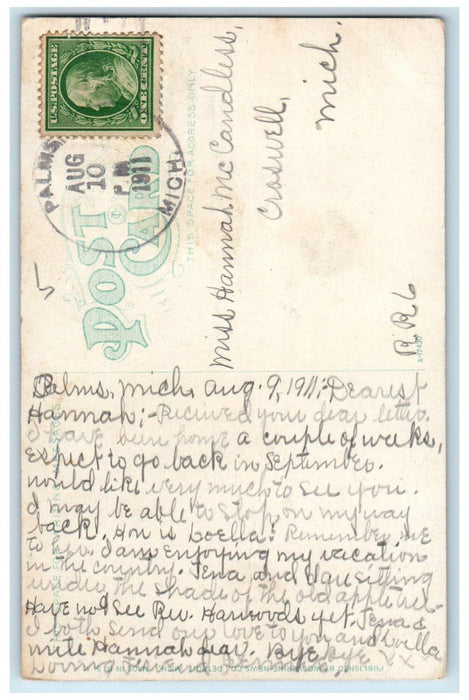 U.S. POSTAGE
ONE CENT
PALMS
AUG
10
P M
1911
MICH.
POST
CARD
THIS SPACE FOR ADDRESS ONLY
Miss Hannah McCandless,
Croswell,
Mich.
R.R. 6
A-17430
Palms, Mich, Aug. 9, 1911; Dearest
Hannah;- Recived your dear letter.
I have been home a couple of weeks,
expect to go back in September.
would like very much to see you.
I may be able to stop on my way
back. How is Loella? Remember me
to her. I am enjoying my vacation
in the country. Tena and I are sitting
under the shade of the old apple tree.
Have not See Rev. yet. Tena &
I both send our love to you and Loella
write Hannah dear. Bye Bye
Loving Friend
PUBLISHED BY WOLVERINE NEWS CO. DETROIT, MICH. MADE IN U.S.